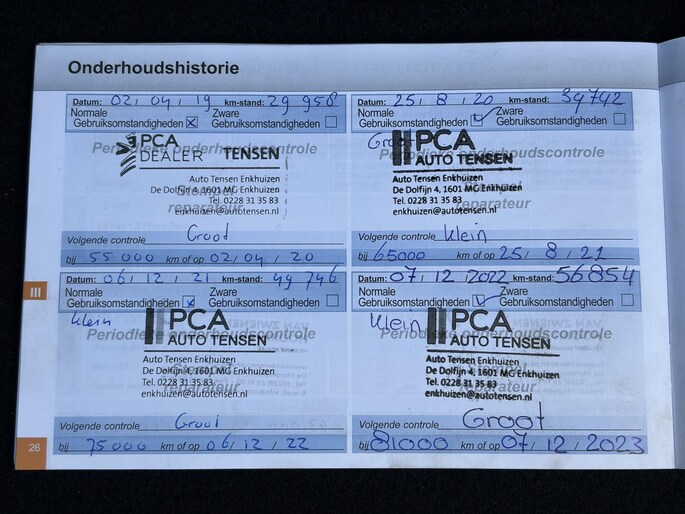 Onderhoudshistorie
Datum: 02 / 04 / 19 km-stand: 29 958
Normale Gebruiksomstandigheden ☒ Zware Gebruiksomstandigheden ☐
PCA
DEALER TENSEN
Periodieke onderhoudscontrole
Auto Tensen Enkhuizen
De Dolfijn 4, 1601 MG Enkhuizen
Stempel
Tel. 0228 31 35 83
reparateur
enkhuizen@autotensen.nl
Volgende controle Groot
bij 55 000 km of op 02 / 04 / 20
Datum: 25 / 8 / 20 km-stand: 39742
Normale Gebruiksomstandigheden ☑ Zware Gebruiksomstandigheden ☐
Groot
PCA
Periodieke onderhoudscontrole
AUTO TENSEN
Auto Tensen Enkhuizen
De Dolfijn 4, 1601 MG Enkhuizen
Stempel
Tel. 0228 31 35 83
reparateur
enkhuizen@autotensen.nl
Volgende controle Klein
bij 65000 km of op 25 / 8 / 21
Datum: 06 / 12 / 21 km-stand: 49 746
Normale Gebruiksomstandigheden ☒ Zware Gebruiksomstandigheden ☐
Klein
PCA
Periodieke onderhoudscontrole
AUTO TENSEN
Auto Tensen Enkhuizen
De Dolfijn 4, 1601 MG Enkhuizen
Stempel
Tel. 0228 31 35 83
reparateur
enkhuizen@autotensen.nl
Volgende controle Groot
bij 75 000 km of op 06 / 12 / 22
Datum: 07 / 12 / 2022 km-stand: 56854
Normale Gebruiksomstandigheden ☑ Zware Gebruiksomstandigheden ☐
Klein
PCA
Periodieke onderhoudscontrole
AUTO TENSEN
Auto Tensen Enkhuizen
De Dolfijn 4, 1601 MG Enkhuizen
Stempel
Tel. 0228 31 35 83
reparateur
enkhuizen@autotensen.nl
Volgende controle Groot
bij 81000 km of op 07 / 12 / 2023
III
26